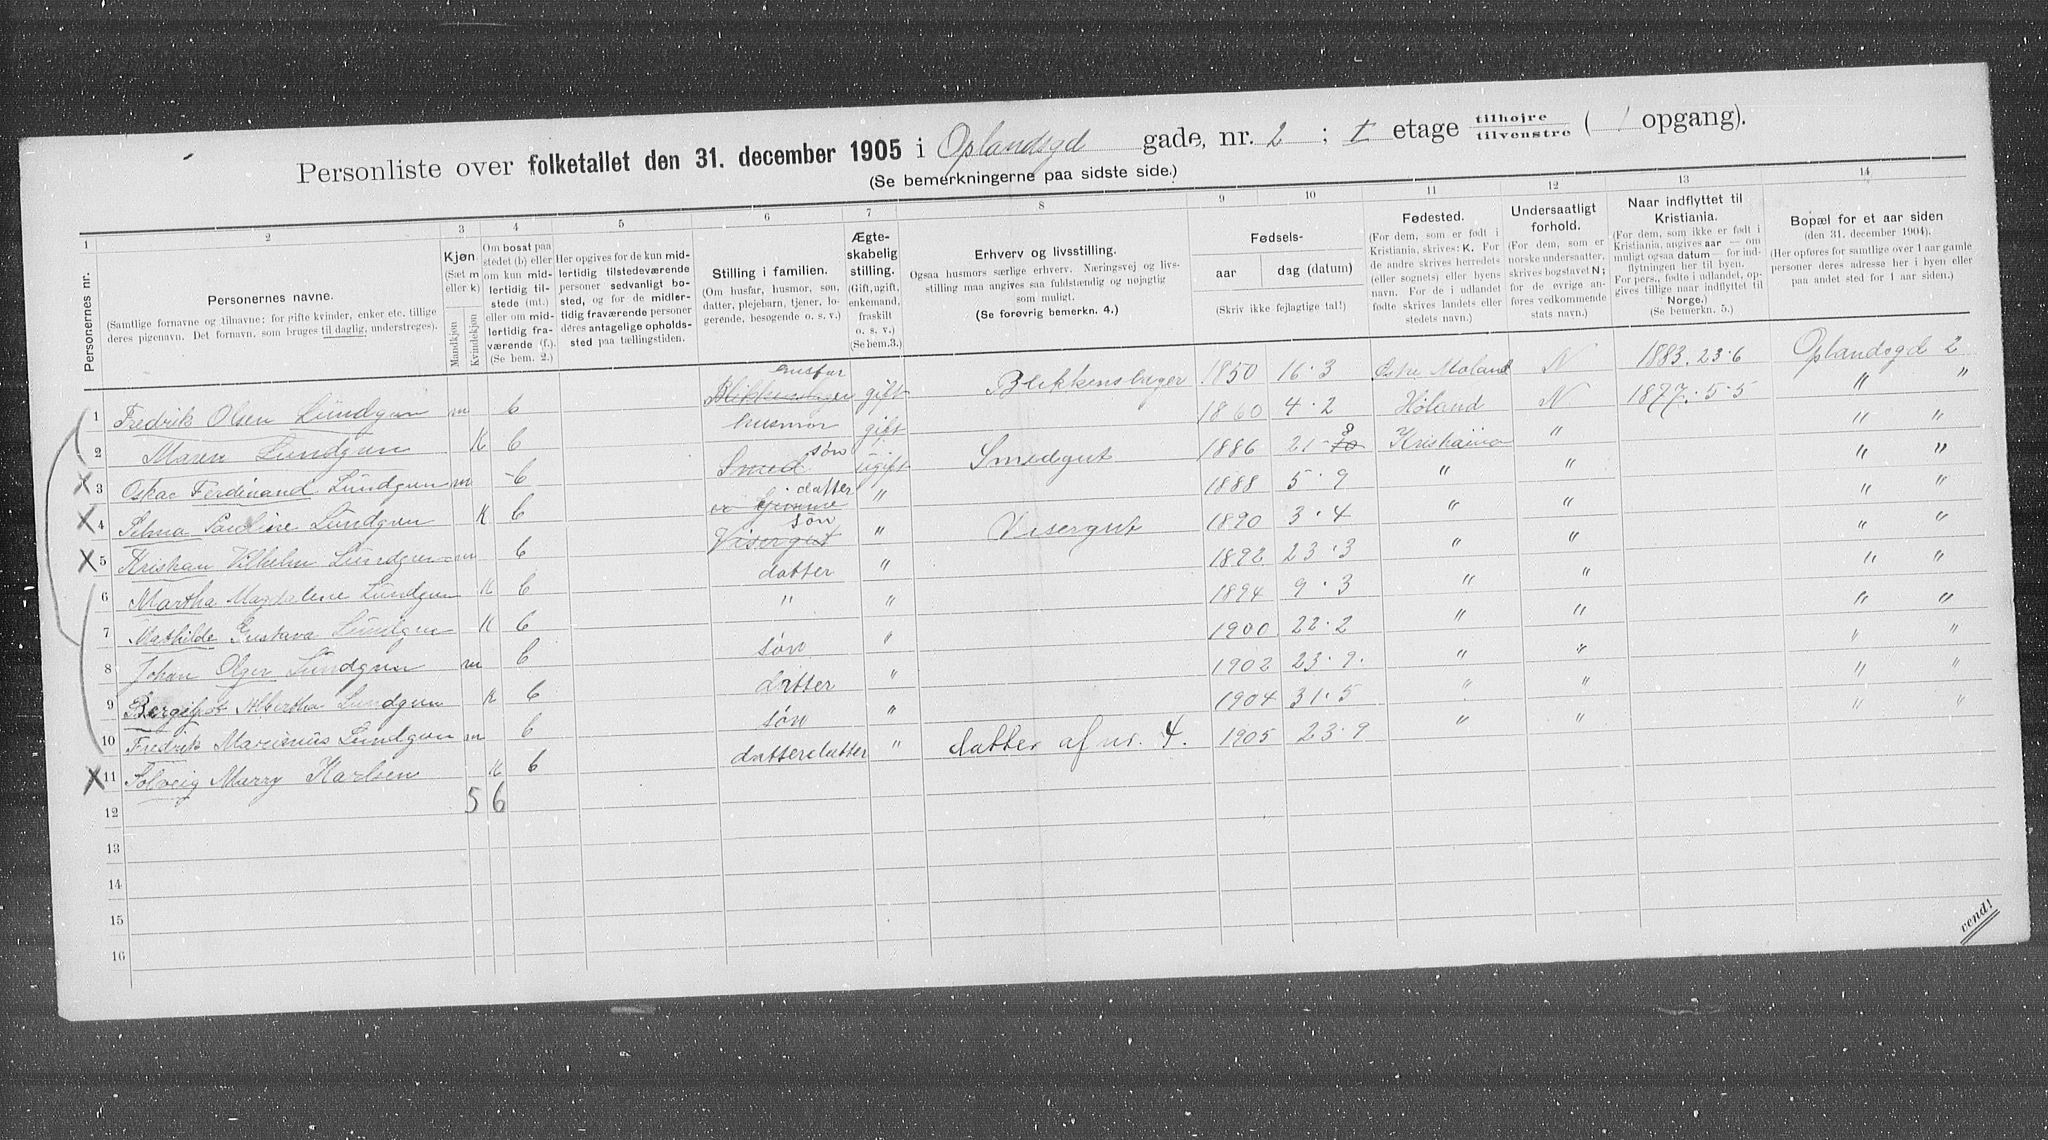 Personliste over folketallet den 31. december 1905 i Oplandsgd gade, nr. 2 ; I etage tilhøjre / tilvenstre ( 1 opgang).
(Se bemerkningerne paa sidste side.)
1 2 3 4 5 6 7 8 9 10 11 12 13 14
Personernes nr.
Personernes navne.
(Samtlige fornavne og tilnavne; for gifte kvinder, enker etc. tillige deres pigenavn. Det fornavn, som bruges til daglig, understreges).
Kjøn (Sæt m eller k)
Mandkjøn Kvindekjøn
Om bosat paa stedet (b) eller om kun midlertidig tilstede (mt.) eller om midlertidig fraværende (f.) (Se bem. 2.)
Her opgives for de kun midlertidig tilstedeværende personer sedvanligt bosted, og for de midlertidig fraværende personer deres antagelige opholdssted paa tællingstiden.
Stilling i familien.
(Om husfar, husmor, søn, datter, plejebarn, tjener, logerende, besøgende o. s. v.)
Ægteskabelig stilling.
(Gift, ugift, enkemand, fraskilt o. s. v.) (Se bem.3.)
Erhverv og livsstilling.
Ogsaa husmors særlige erhverv. Næringsvej og livsstilling maa angives saa fuldstændig og nøjagtig som muligt.
(Se forøvrig bemerkn. 4.)
Fødsels-
aar dag (datum)
(Skriv ikke fejlagtige tal!)
Fødested.
(For dem, som er født i Kristiania, skrives: K. For de andre skrives herredets (eller sognets) eller byens navn. For de i udlandet fødte skrives landets eller stedets navn.)
Undersaatligt forhold.
(For dem, som er norske undersaatter, skrives bogstavet N; for de øvrige anføres vedkommende stats navn.)
Naar indflyttet til Kristiania.
(For dem, som ikke er født i Kristiania, angives aar — om muligt ogsaa datum — for indflytningen her til byen. For pers., fødte i udlandet, opgives tillige naar indflyttet til Norge.) (Se bemerkn. 5.)
Bopæl for et aar siden (den 31. december 1904).
(Her opføres for samtlige over 1 aar gamle personer deres adresse her i byen eller paa andet sted for 1 aar siden.)
1 Fredrik Olsen Lundgren m b Blikkenslager husfar gift Blikkenslager 1850 16.3 N 1883. 23.6 Oplandsgd 2
2 Maren Lundgren K b husmor gift 1860 4.2 Høland N 1877. 5.5 " "
3 Oskar Ferdinand Lundgren m b Smed søn ugift Smedgut 1886 21. 10 8 Kristiania " " "
4 Selma Pauline Lundgren K b datter " 1888 5.9 " " " "
5 Kristian Vilhelm Lundgren m b Visergut søn " Visergut 1890 3.4 " " " "
6 Martha Magdalene Lundgren K b datter " 1892 23.3 " " " "
7 Mathilde Gustava Lundgren K b " " 1894 9.3 " " " "
8 Johan Olger Lundgren m b søn " 1900 22.2 " " " "
9 Bergljot Albertha Lundgren K b datter " 1902 23.9. " " " "
10 Fredrik Marinius Lundgren m b søn " 1904 31.5 " " " "
11 Solveig Marry Karlsen K b datterdatter " datter af nr. 4. 1905 23.9 " " " "
12 5 6
13
14
15
16
vend!